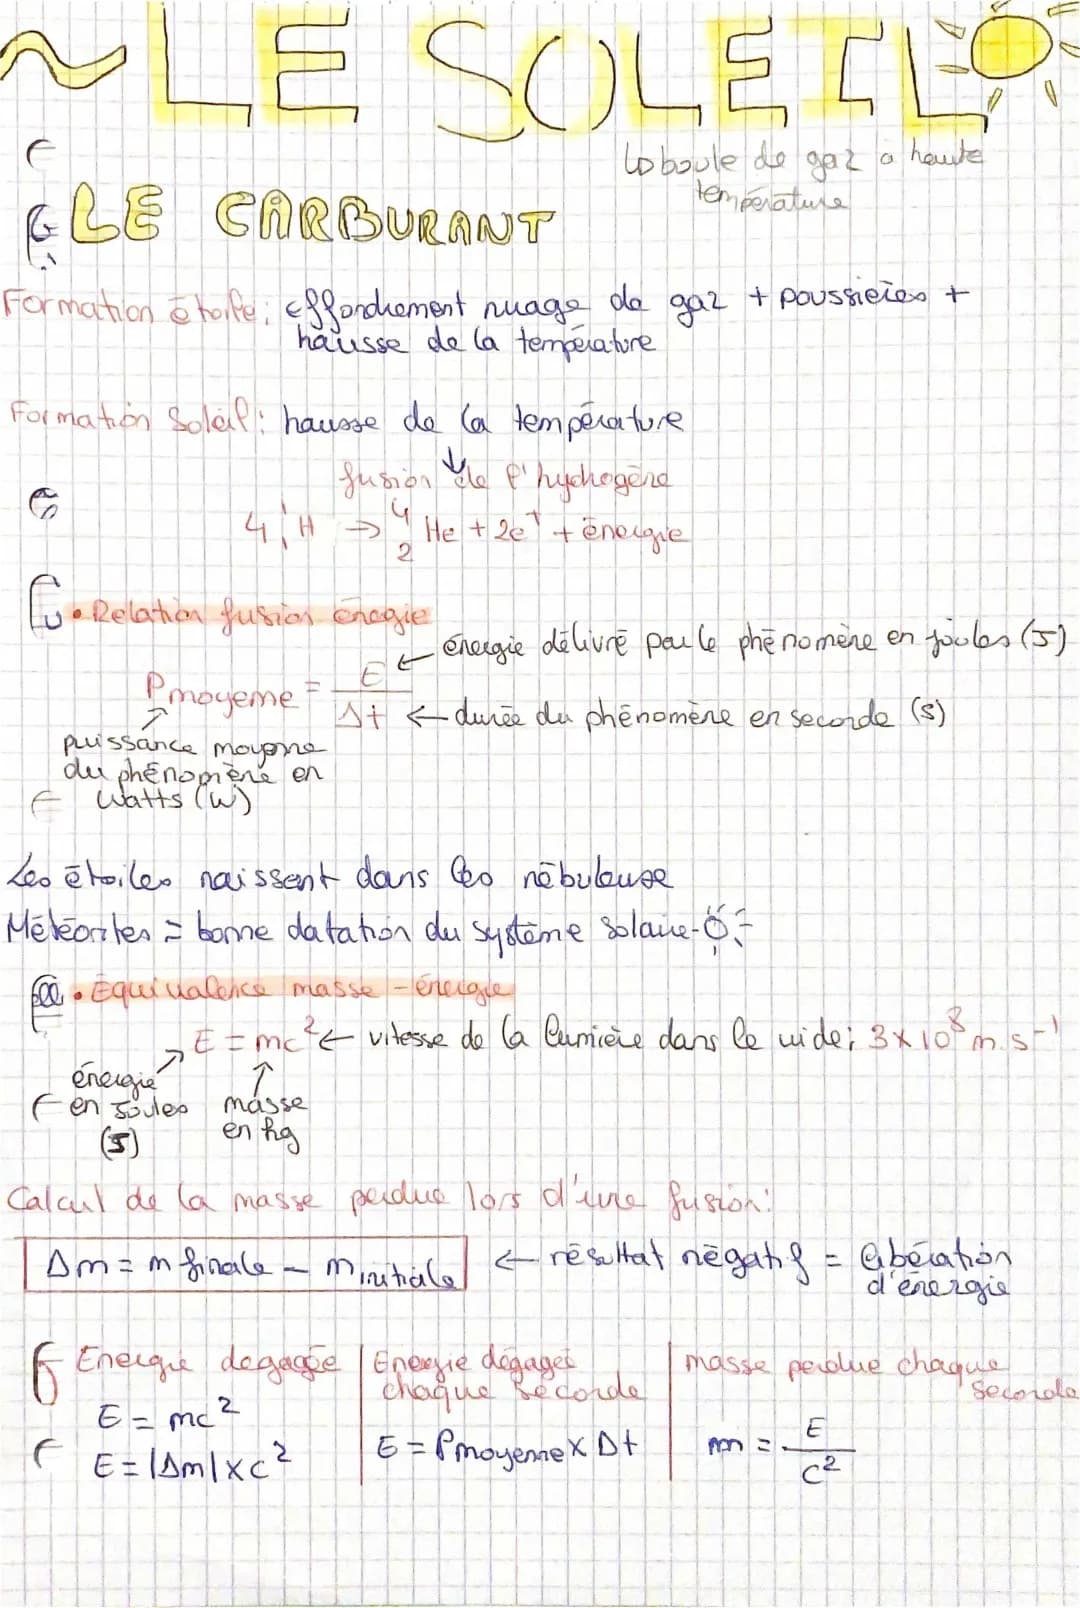 ~ LE SOLEIL
↳ boule de gaz à haute
température
LE CARBURANT
Formation étoile : effondrement nuage de gaz + poussières +
hausse de la température
Formation Soleil : hausse de la température
↓
fusion de l'hydrogène
4 ¹₁H → ⁴₂He + 2e⁺ + énergie
• Relation fusion énergie
Pmoyenne = E/Δt
← énergie délivré par le phénomène en joules (J)
← durée du phénomène en seconde (s)
puissance moyenne
du phénomène en
Watts (W)
Les étoiles naissent dans les nébuleuse
Météorites = bonne datation du système solaire
• Equivalence masse - énergie
E = mc² ← vitesse de la lumière dans le vide : 3 × 10⁸ m.s⁻¹
énergie
en Joules
(J)
masse
en kg
Calcul de la masse perdue lors d'une fusion :
Δm = m finale - minitiale ← résultat négatif = libération
d'énergie
Energie dégagée
E = mc²
E = |Δm| × c²
Energie dégagée
chaque seconde
E = Pmoyenne × Δt
masse perdue chaque
seconde
m = E/c²